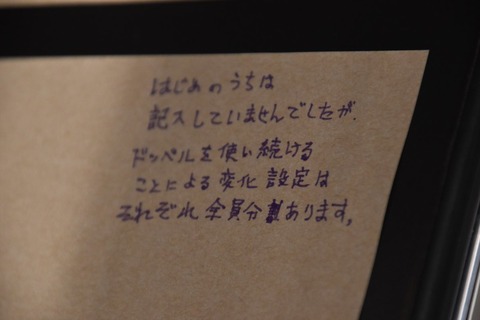 はじめのうちは
記入していませんでしたが、
ドッペルを使い続ける
ことによる変化設定は
それぞれ全員分あります。